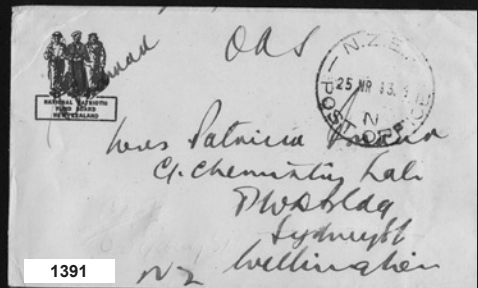 OAS
NATIONAL PATRIOTIC
FUND BOARD
NEW ZEALAND
N.Z.E.
25 MR
N
POST OFFICE
Patricia
Chemistry Lab
PWD Bldg
Sydney St
Wellington
NZ
1391